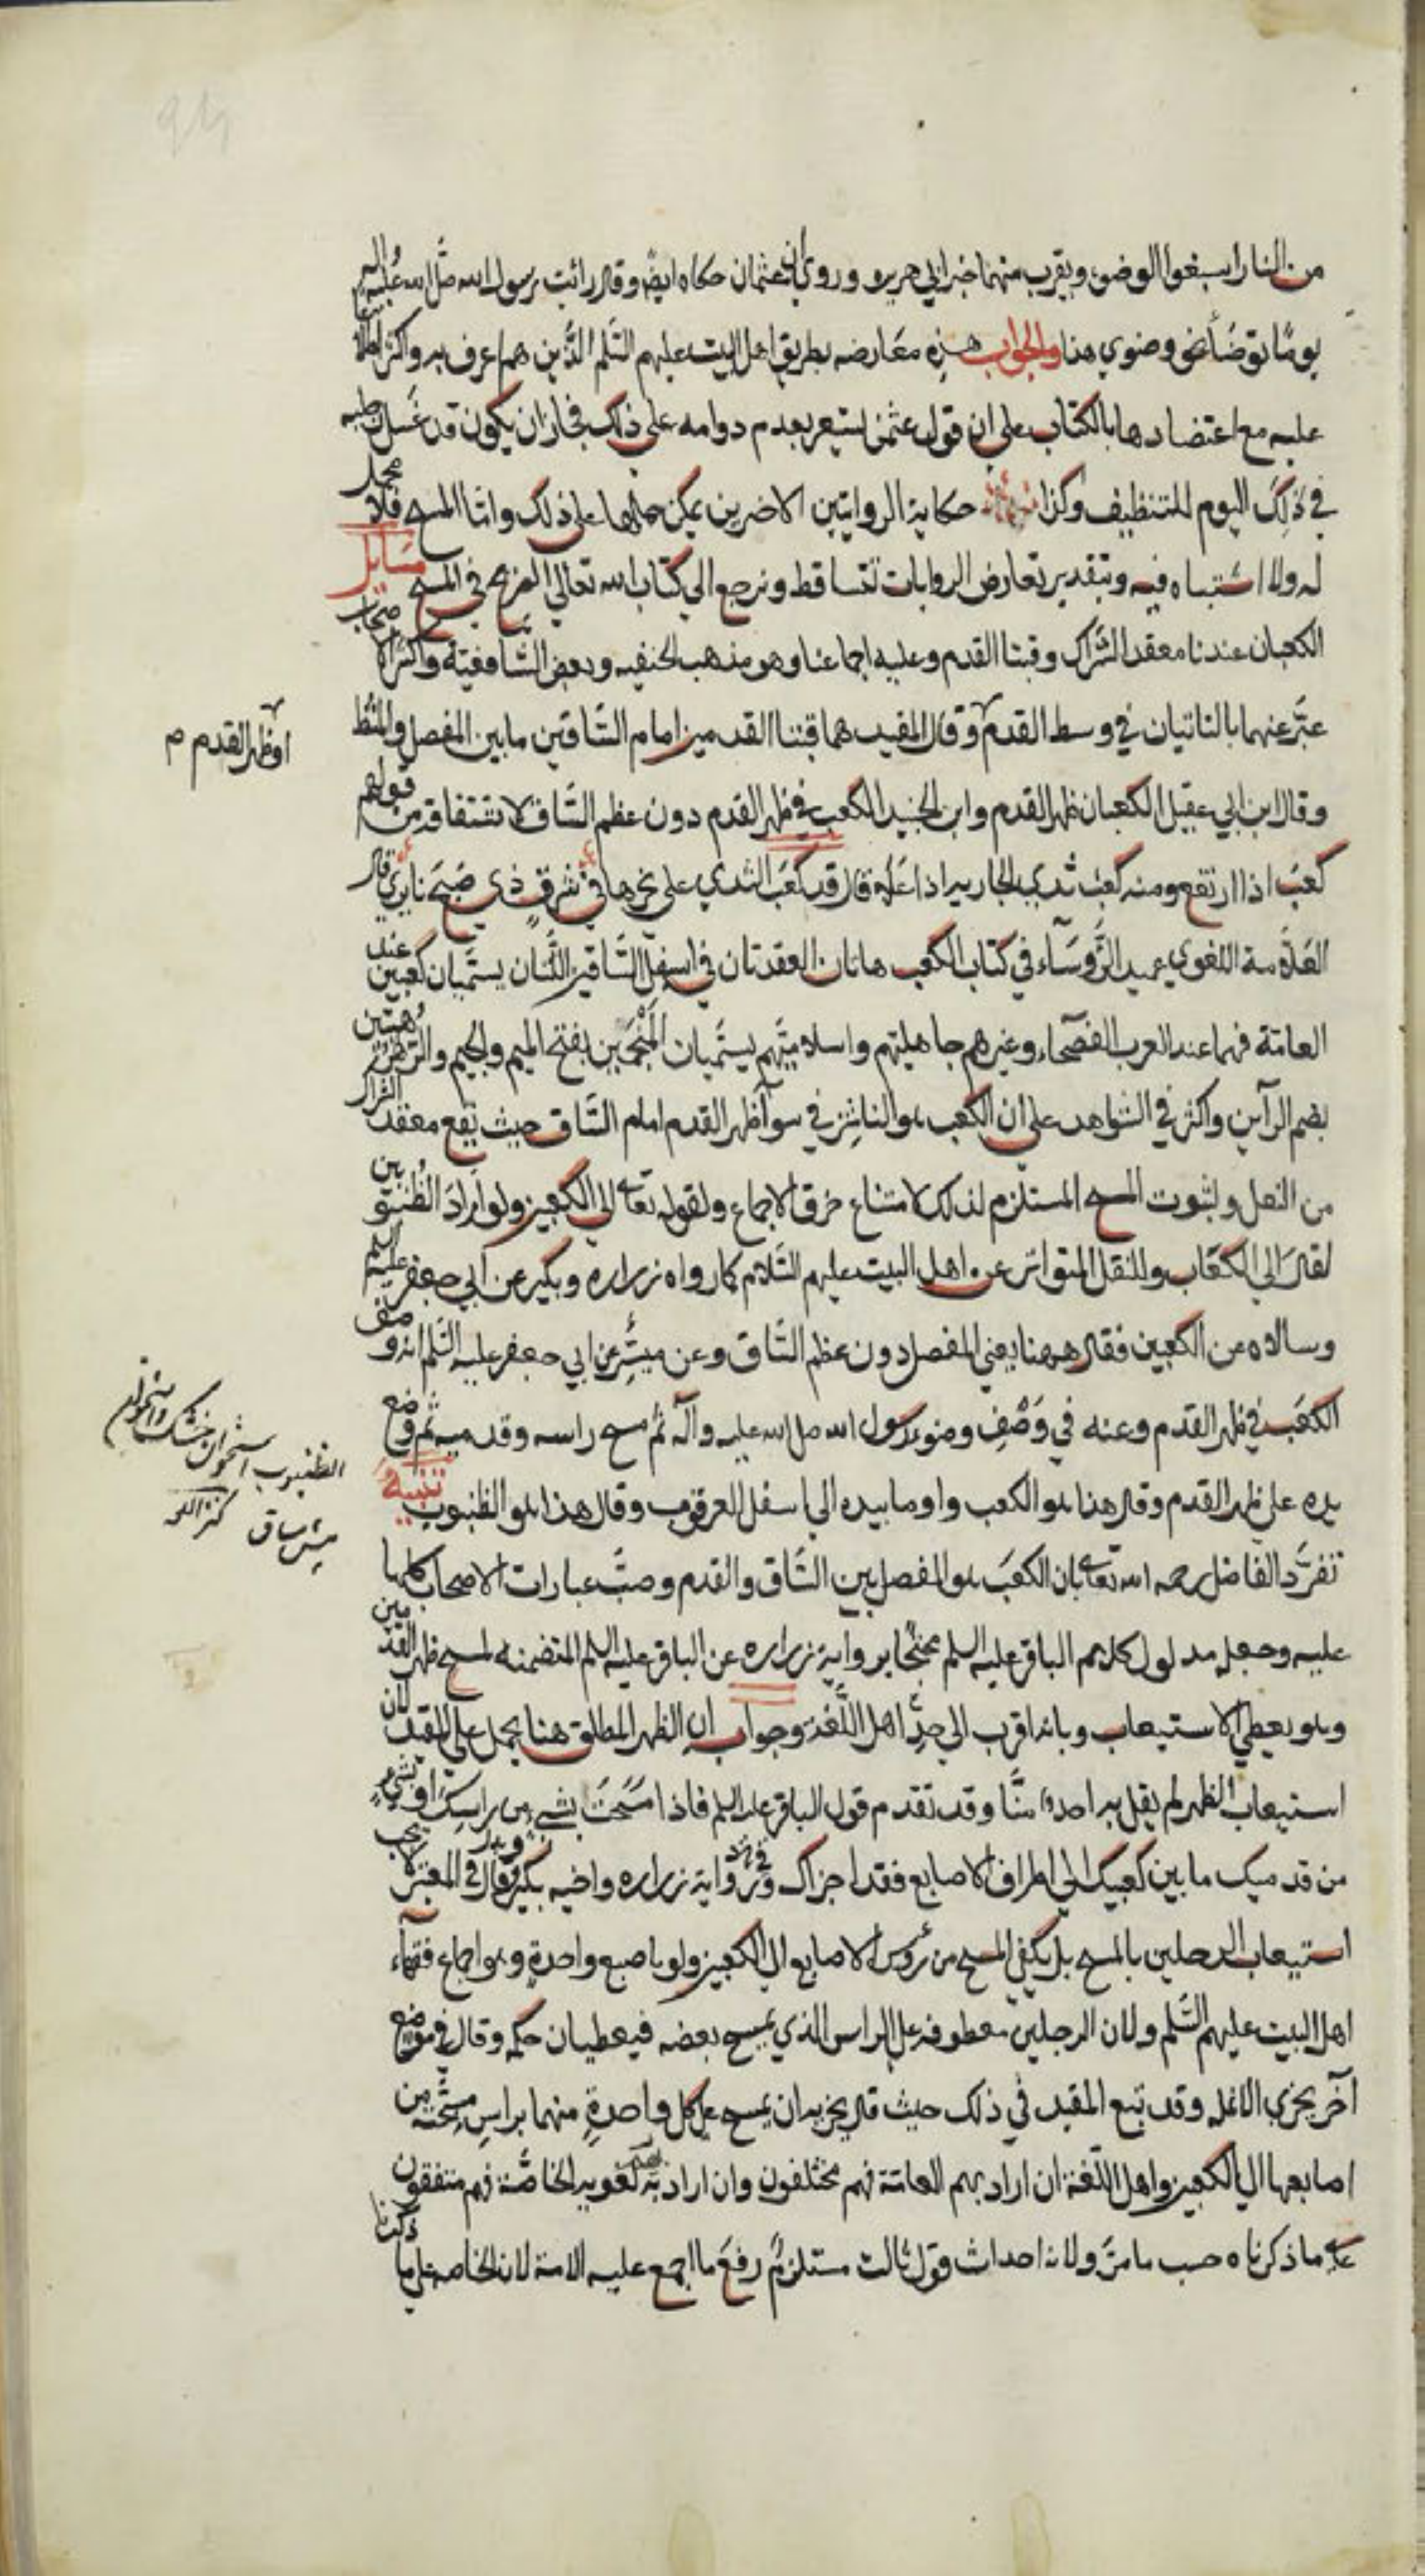 من النار اسبغوا الوضوء ويقرب منهما خبر ابي هريره وروي ان عثمان حكاه ايضا وقال رائت رسول الله صلى الله عليه واله
يوما توضأ نحو وضوي هذا والجواب هذه معارضه بطريق اهل البيت عليهم السلم الذين هم اعرف به واكثر اطلاعا
عليه مع اعتضادها بالكتاب على ان قول عثمن يشعر بعدم دوامه على ذلك فجاز ان يكون قد غسل رجليه
في ذلك اليوم للتنظيف وكذا حكاية الروايتين الاخريين يمكن حملها على ذلك وامّا المسح فلا محمل
له ولا اشتباه فيه وبتقدير تعارض الروايات تتساقط ونرجع الي كتاب الله تعالي الصريح في المسح مسايل
الكعبان عندنا معقد الشراك وقبتا القدم وعليه اجماعنا وهو مذهب الحنفيه وبعض الشافعيّة واكثر الاصحاب
عبّر عنهما بالناتيان في وسط القدم وقال المفيد هما قبتا القدمين امام السّاقين ما بين المفصل والمشط
او ظهر القدم م
وقال ابن ابي عقيل الكعبان ظهر القدم وابن الجنيد الكعب في ظهر القدم دون عظم السّاق لاشتقاقه من قولهم
كعب اذا ارتفع ومنه كعب ثدي الجاريه اذا علا قال قد كعب الثدي على نحرها في مشرق ذي صبح نايري قال
العلّامة اللغوي عميد الرّؤساء في كتاب الكعب هاتان العقدتان في اسفل السّاقين اللّتان يسمّيان كعبين عند
العامّة فهما عند العرب الفصحاء وغيرهم جاهليتهم واسلاميّتهم يسمّيان المنجمين بفتح الميم والجيم والرهرهتين
بضم الرآين واكثر في الشواهد على ان الكعب هو الناشز في سوآ ظهر القدم امام السّاق حيث يقع معقد الشراك
من النعل ولثبوت المسح المستلزم لذلك لامتناع خرق الاجماع ولقوله تعالى الى الكعبين ولو اراد الظنبوبين
لقال الى الكعاب والنقل المتواتر عن اهل البيت عليهم السّلام كما رواه زراره وبكير عن ابي جعفر عليه السلم
وسالاه عن الكعبين فقال ههنا يعني المفصل دون عظم السّاق وعن ميسّر عن ابي جعفر عليه السّلم انه وصف
الكعب في ظهر القدم وعنه في وصف وضوء رسول الله صلى الله عليه وآله ثم مسح راسه وقدميه ثم وضع
الظنبوب استخوان خشك
پیش ساق كنز اللغه
يده على ظهر القدم وقال هذا هو الكعب واومأ بيده الي اسفل العرقوب وقال هذا هو الظنبوب تنبيه
تفرّد الفاضل رحمه الله تعالى بان الكعب هو المفصل بين السّاق والقدم وصبّ عبارات الاصحاب كلها
عليه وجعل مدلول كلام الباقر عليه السلم محتجّا برواية زراره عن الباقر عليه السلم المتضمنه لمسح ظهر القدمين
وهو يعطي الاستيعاب وبانه اقرب الي حدّ اهل اللّغة وجوابه ان الظهر المطلق هنا يحمل على المقيد لان
استيعاب الظهر لم يقل به احد منّا وقد تقدم قول الباقر عليه السلم فاذا مسحت بشيء من راسك او بشيء
من قدميك ما بين كعبيك الي اطراف الاصابع فقد اجزاك رواية زراره واخيه بكير وقال في المعتبر لا يجب
استيعاب الرجلين بالمسح بل يكفي المسح من رؤس الاصابع الى الكعبين ولو باصبع واحدة وهو اجماع فقهاء
اهل البيت عليهم السّلم ولان الرجلين معطوفه على الراس الذي يمسح بعضه فيعطيان حكمه وقال في موضع
آخر يجزي الانمله وقد تبع المفيد في ذلك حيث قال يجزيه ان يمسح على كل واحدة منهما براس مسبحته من
اصابعها الي الكعبين واهل اللّغة ان اراد بهم العامّة فهم مختلفون وان اراد به لغويه الخاصّة فهم متفقون
على ما ذكرناه حسب ما مرّ ولانه احداث قول ثالث مستلزم رفع ما اجمع عليه الامة لان الخاصه على ما ذكرنا